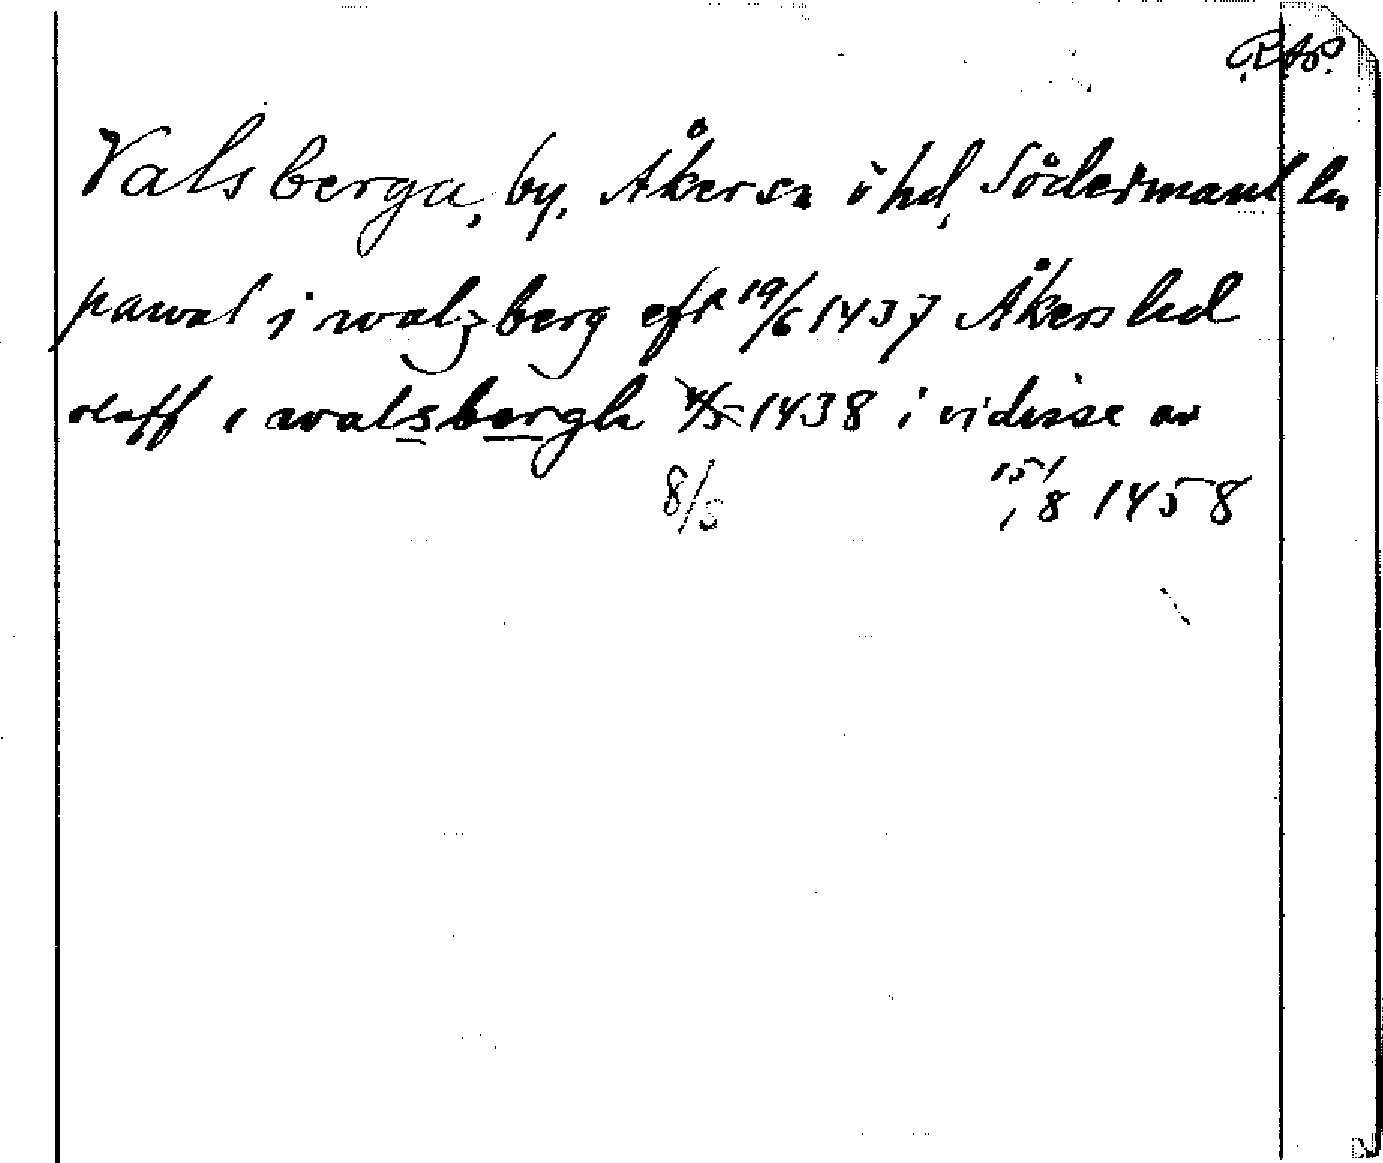 RAP.
Valsberga, by, Åkers sn o hd, Södermanl ln
pawal i walzberg eft 19/6 1437 Åkers hd
olaff i walsbergh 4/5 1438 i vidisse av
8/5 15/8 1458